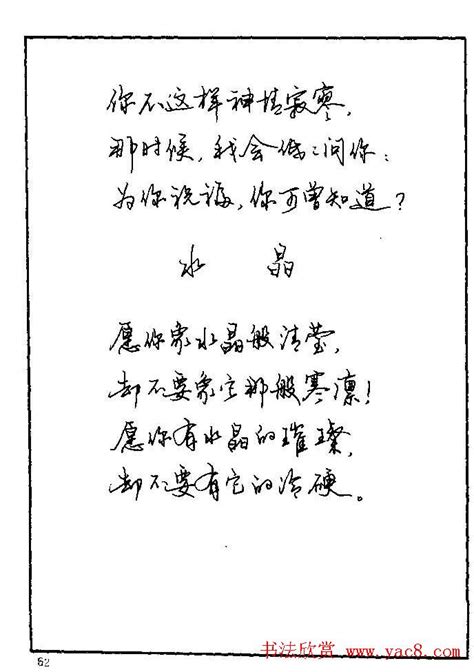 你不这样神情寂寥,
那时候,我会低低问你:
为你祝诲,你可曾知道?
水 晶
愿你象水晶般清莹,
却不要象它那般寒凛!
愿你有水晶的璀璨,
却不要有它的冷硬。
62
书法欣赏 www.yac8.com